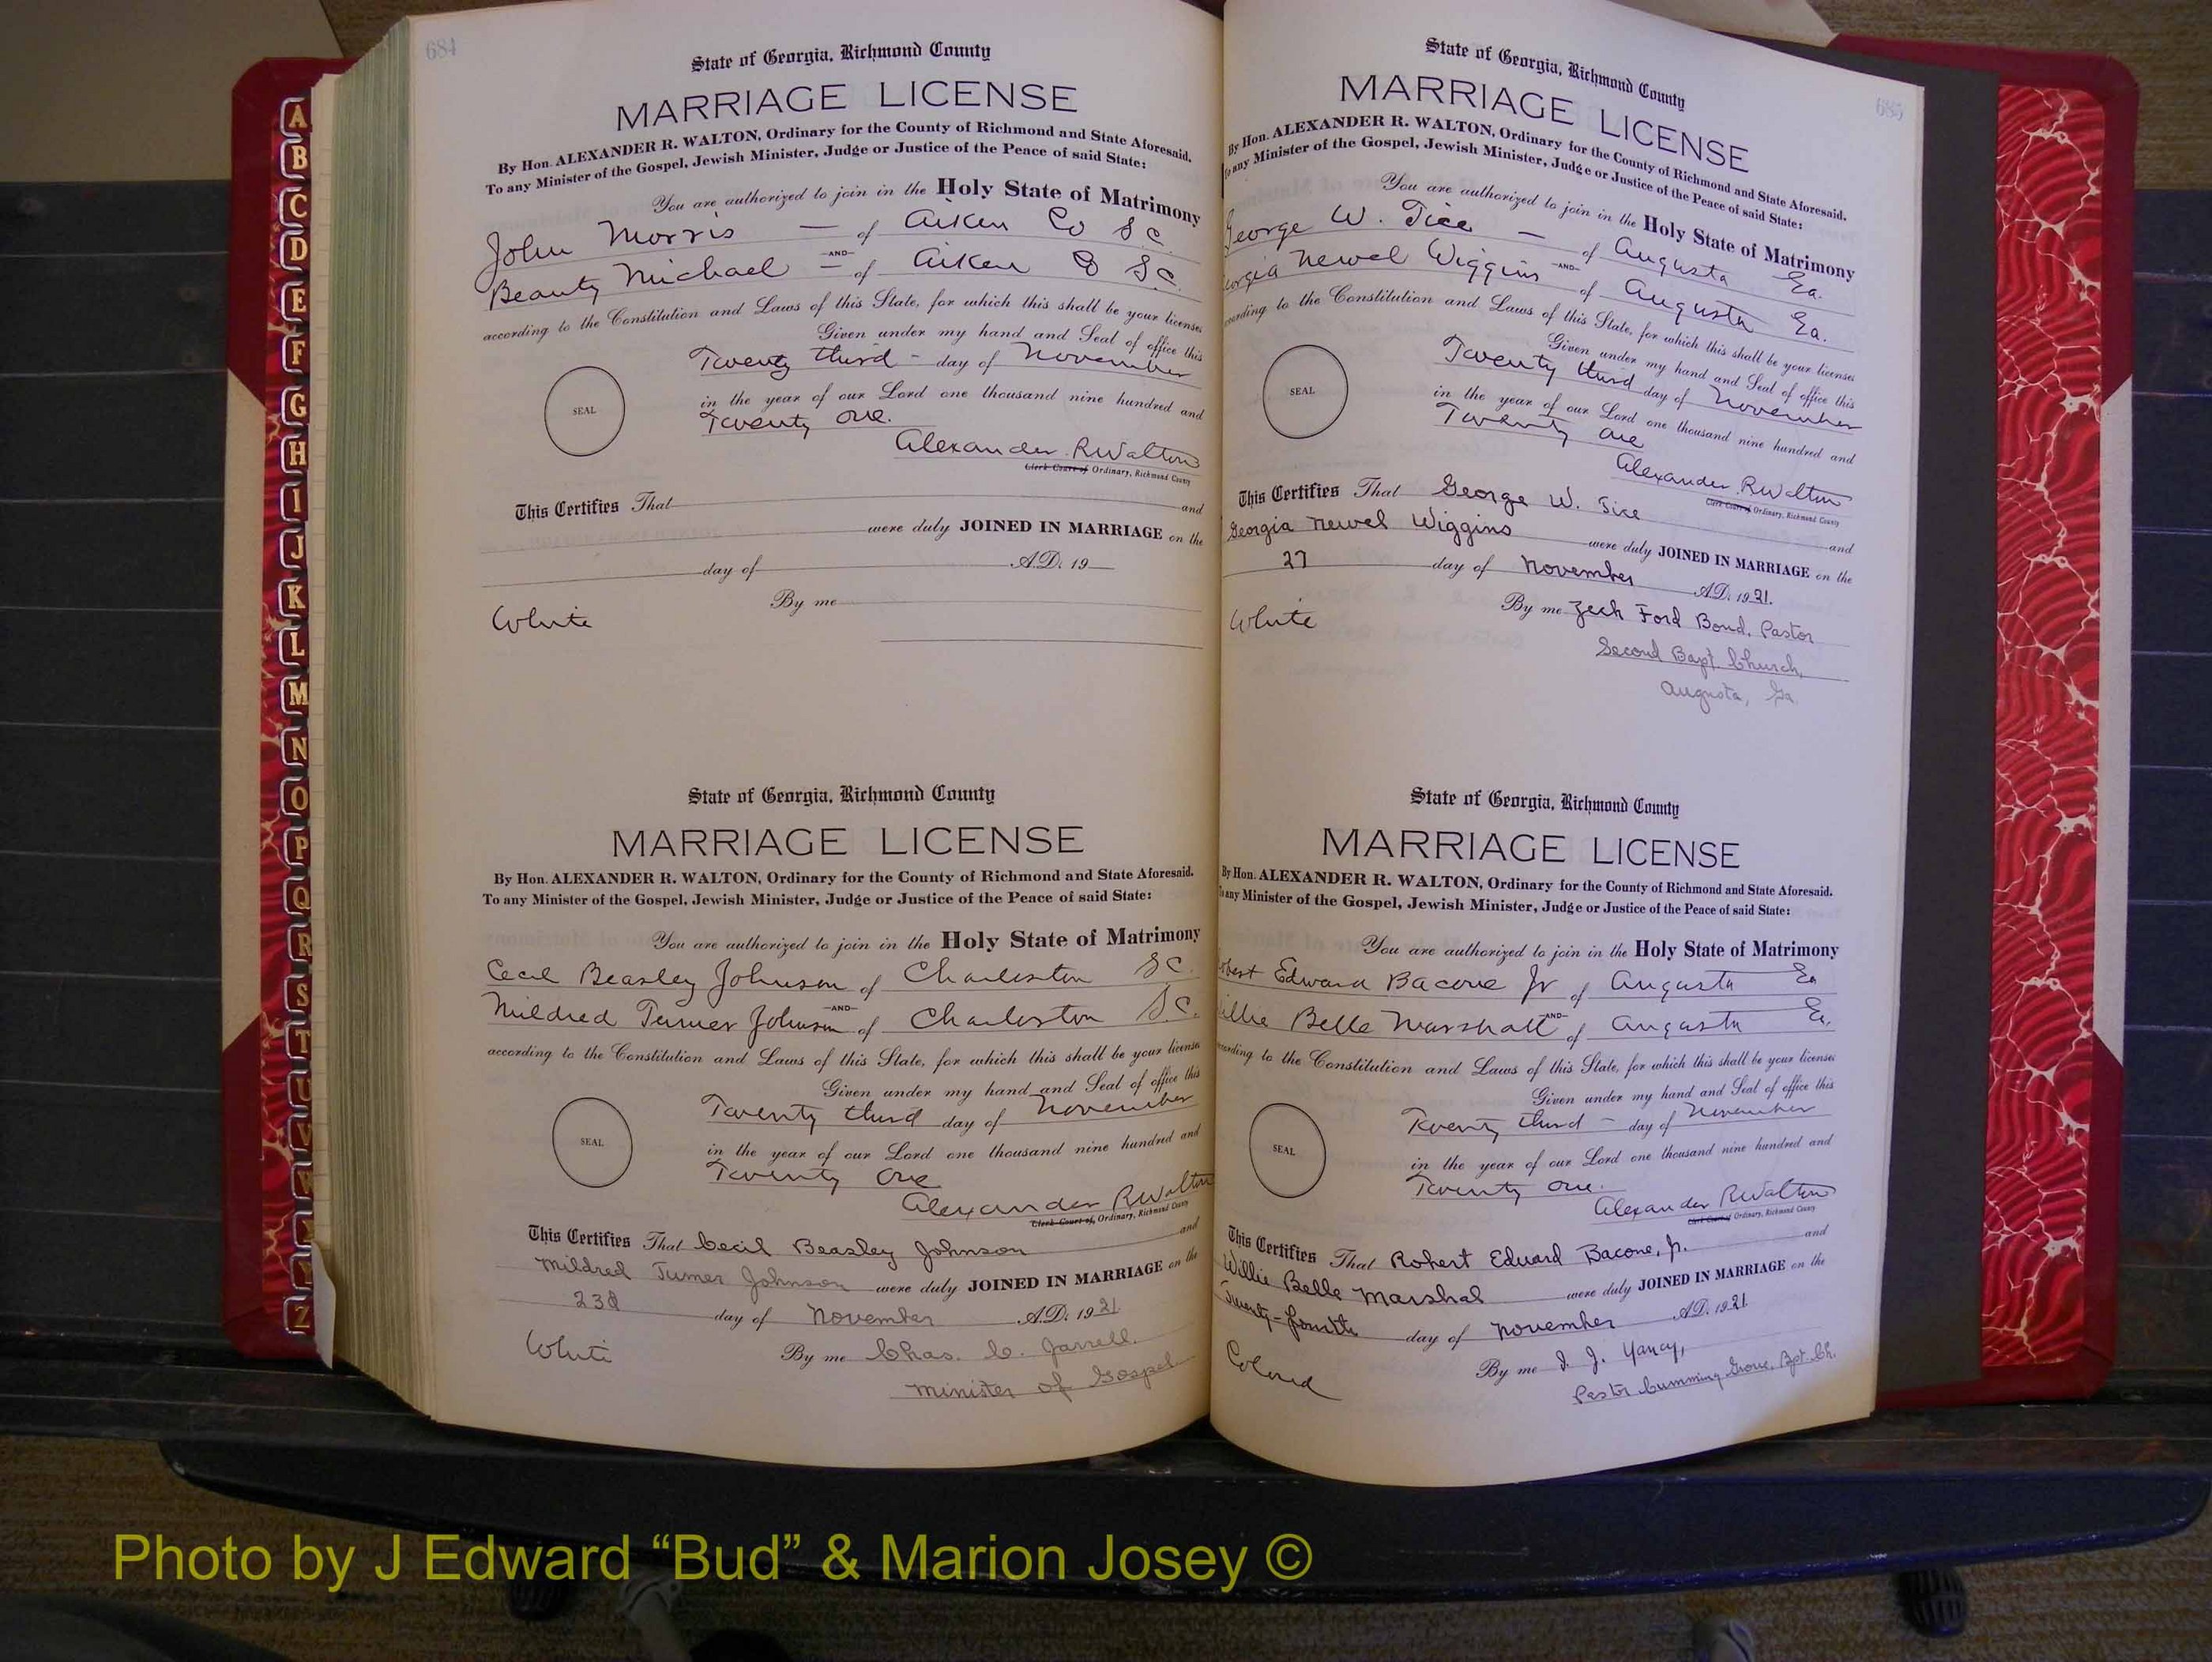 684
State of Georgia, Richmond County
MARRIAGE LICENSE
By Hon. ALEXANDER R. WALTON, Ordinary for the County of Richmond and State Aforesaid.
To any Minister of the Gospel, Jewish Minister, Judge or Justice of the Peace of said State:
You are authorized to join in the Holy State of Matrimony
John Morris — of Aiken Co S.C.
—AND—
Beauty Michael — of Aiken Co S.C.
according to the Constitution and Laws of this State, for which this shall be your license
Given under my hand and Seal of office this
Twenty third - day of November
SEAL
in the year of our Lord one thousand nine hundred and
Twenty One.
Alexander R Walton
Clerk Court of Ordinary, Richmond County
This Certifies That and
were duly JOINED IN MARRIAGE on the
day of A.D. 19
By me
White
State of Georgia, Richmond County
MARRIAGE LICENSE
By Hon. ALEXANDER R. WALTON, Ordinary for the County of Richmond and State Aforesaid.
To any Minister of the Gospel, Jewish Minister, Judge or Justice of the Peace of said State:
You are authorized to join in the Holy State of Matrimony
Cecil Beasley Johnson of Charleston S.C.
—AND—
Mildred Turner Johnson of Charleston S.C.
according to the Constitution and Laws of this State, for which this shall be your license
Given under my hand and Seal of office this
Twenty third day of November
SEAL
in the year of our Lord one thousand nine hundred and
Twenty One
Alexander R Walton
Clerk Court of, Ordinary, Richmond County
This Certifies That Cecil Beasley Johnson and
Mildred Turner Johnson were duly JOINED IN MARRIAGE on the
23d day of November A.D. 1921.
White
By me Chas. C. Jarrell.
Minister of Gospel
685
State of Georgia, Richmond County
MARRIAGE LICENSE
By Hon. ALEXANDER R. WALTON, Ordinary for the County of Richmond and State Aforesaid.
To any Minister of the Gospel, Jewish Minister, Judge or Justice of the Peace of said State:
You are authorized to join in the Holy State of Matrimony
George W. Tice — of Augusta Ga.
—AND—
orgia Newel Wiggins of Augusta Ga.
cording to the Constitution and Laws of this State, for which this shall be your license
Given under my hand and Seal of office this
Twenty third day of November
SEAL
in the year of our Lord one thousand nine hundred and
Twenty One
Alexander R Walton
Clerk Court of Ordinary, Richmond County
This Certifies That George W. Tice and
Georgia Newel Wiggins were duly JOINED IN MARRIAGE on the
27 day of November A.D. 1921.
White
By me Zech Ford Bond, Pastor
Second Bapt. Church,
Augusta, Ga.
State of Georgia, Richmond County
MARRIAGE LICENSE
By Hon. ALEXANDER R. WALTON, Ordinary for the County of Richmond and State Aforesaid.
To any Minister of the Gospel, Jewish Minister, Judge or Justice of the Peace of said State:
You are authorized to join in the Holy State of Matrimony
obert Edward Bacone Jr of Augusta Ga
—AND—
illie Belle Marshall of Augusta Ga.
cording to the Constitution and Laws of this State, for which this shall be your license
Given under my hand and Seal of office this
Twenty third - day of November
SEAL
in the year of our Lord one thousand nine hundred and
Twenty One.
Alexander R Walton
Clerk Court of Ordinary, Richmond County
This Certifies That Robert Edward Bacone, Jr. and
Willie Belle Marshal were duly JOINED IN MARRIAGE on the
Twenty-fourth day of November A.D. 1921.
Colored
By me I. J. Yancy,
Pastor Cumming Grove, Bpt. Ch.
A
B
C
D
E
F
G
H
I
J
K
L
M
N
O
P
Q
R
S
T
U
V
W
Z
Photo by J Edward “Bud” & Marion Josey ©